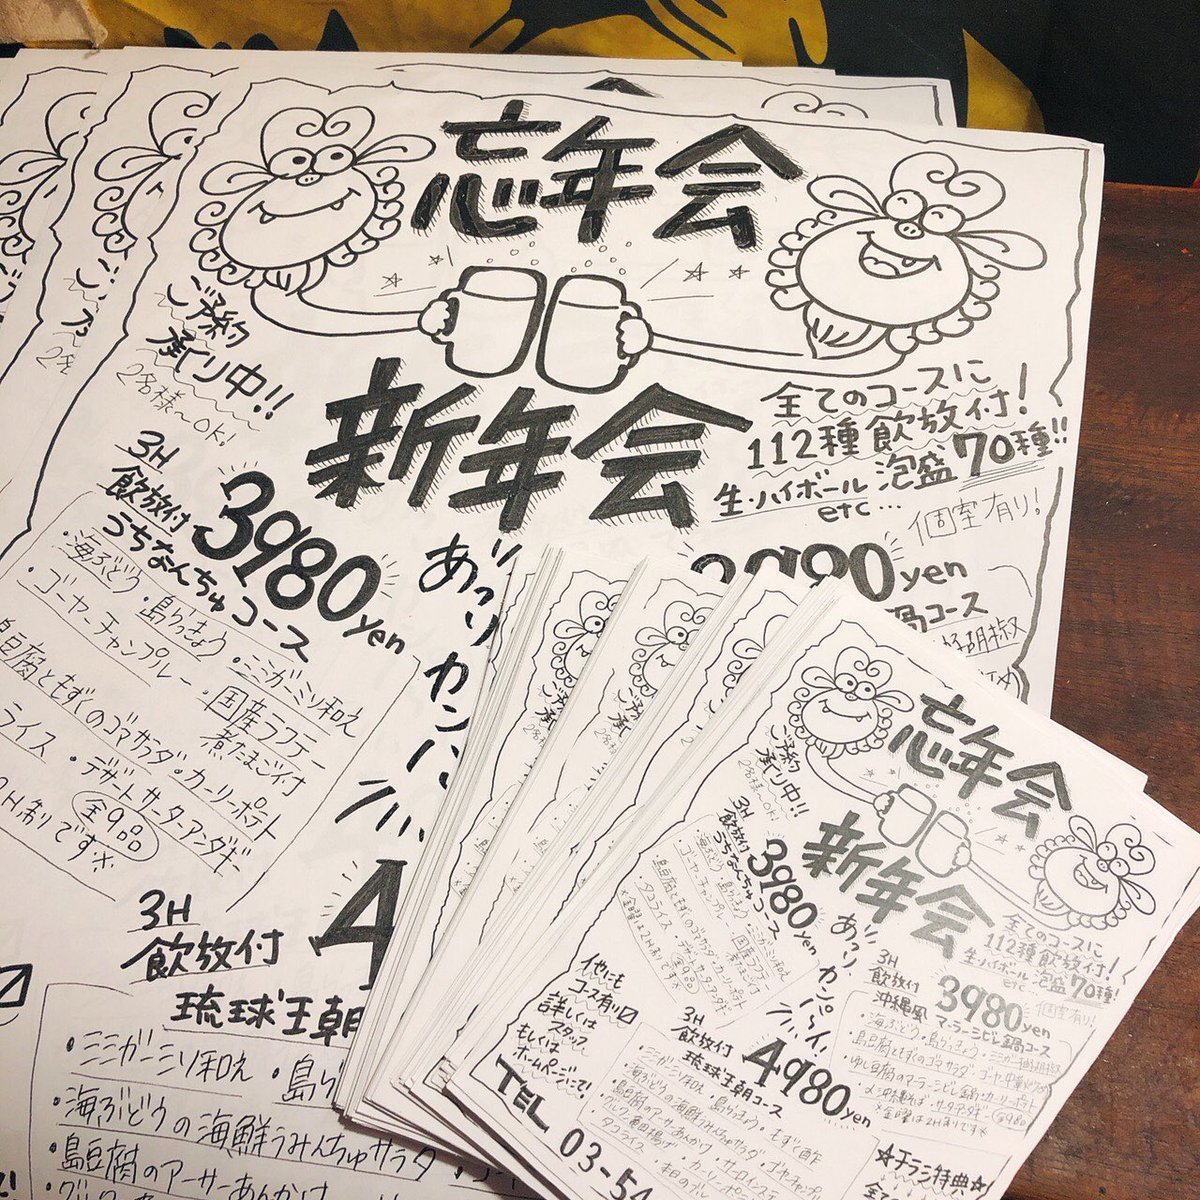 忘年会
新年会
ご予約
承り中!!
2名様〜OK!
全てのコースに
112種飲放付!
生・ハイボール 泡盛70種!!
etc…
個室有り!
3H
飲放付 3980yen
うちなんちゅコース
・海ぶどう・島らっきょう・ミミガーミソ和え
・ゴーヤーチャンプルー・国産ラフテー
煮たまご付
島豆腐ともずくのゴマサラダ・カーリーポテト
ライス・デザートサーターアンダギー
2H制です※ 全9品
あっり
カンパーイ
3H
飲放付
琉球王朝
・ミミガーミソ和え・島
・海ぶどうの海鮮うみんちゅサラダ
・島豆腐のアーサーあんかけ
3980yen
鍋コース
忘年会
新年会
ご予約
承り中!!
2名様〜OK!
全てのコースに
112種飲放付!
生・ハイボール 泡盛70種!
etc
個室有り!
3H
飲放付 3980yen
うちなんちゅコース
・海ぶどう・島らっきょう・ミミガーミソ和え
・ゴーヤーチャンプルー・国産ラフテー
煮たまご付
・島豆腐ともずくのゴマサラダ・カーリーポテト
・タコライス・デザートサーターアンダギー
※金曜は2H制です※ 全9品
あっり
カンパーイ
3H
飲放付 3980yen
沖縄風マーラーシビレ鍋コース
・海ぶどう・島らっきょう・ミミガー
・島豆腐ともずくのゴマサラダ・ゴーヤー
・ゆし豆腐のマーラーシビレ鍋・カーリーポテト
・〆沖縄そば・サーターアンダギー
※金曜は2H制です※ 全9品
他にも
コース有り
詳しくは
スタッフ
もしくは
ホームページにて!
3H
飲放付 4980yen
琉球王朝コース
・ミミガーミソ和え・島らっきょう・もずく酢
・海ぶどうの海鮮うみんちゅサラダ
・島豆腐のアーサーあんかけ・ゴーヤーチャンプルー
・グルクン唐揚げ・カーリーポテト・サーロインステーキ
・タコライス
TEL 03-54
☆チラシ特典☆
全て